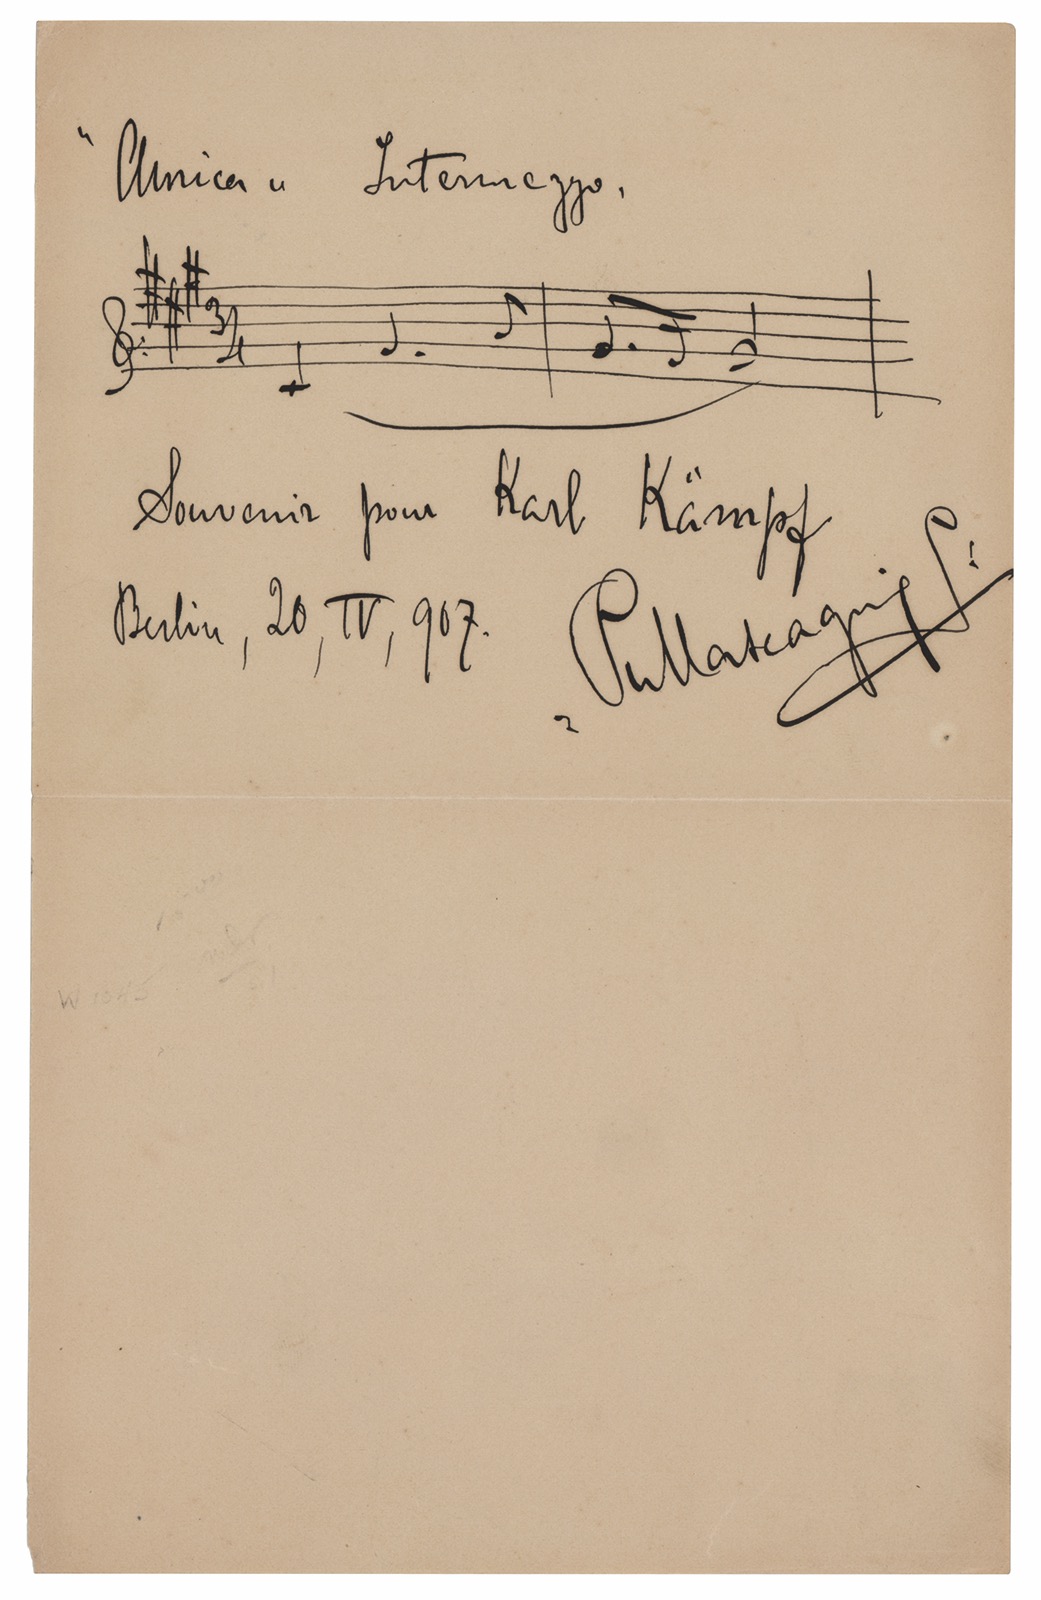 "Amica" Intermezzo.
3/4
Souvenir pour Karl Kämpf
Berlin, 20, IV, 907. PMascagni
W 1045